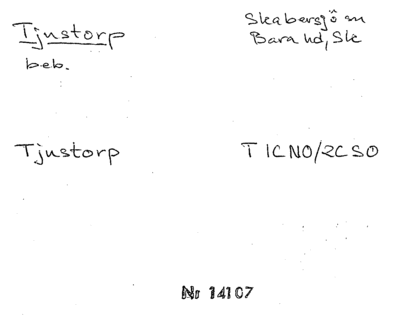 Tjustorp
beb.
Skabersjö sn
Bara hd, Sk
Tjustorp
T ICNO/2CSO
Nr 14107